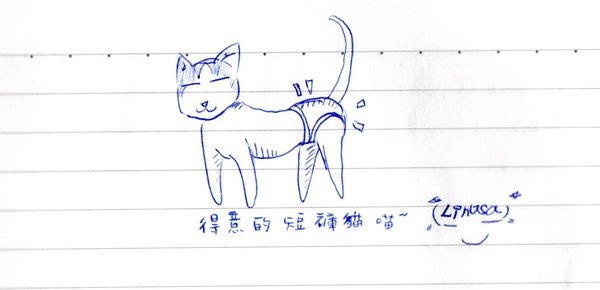 得意的短褲貓喵~ (Linusa)